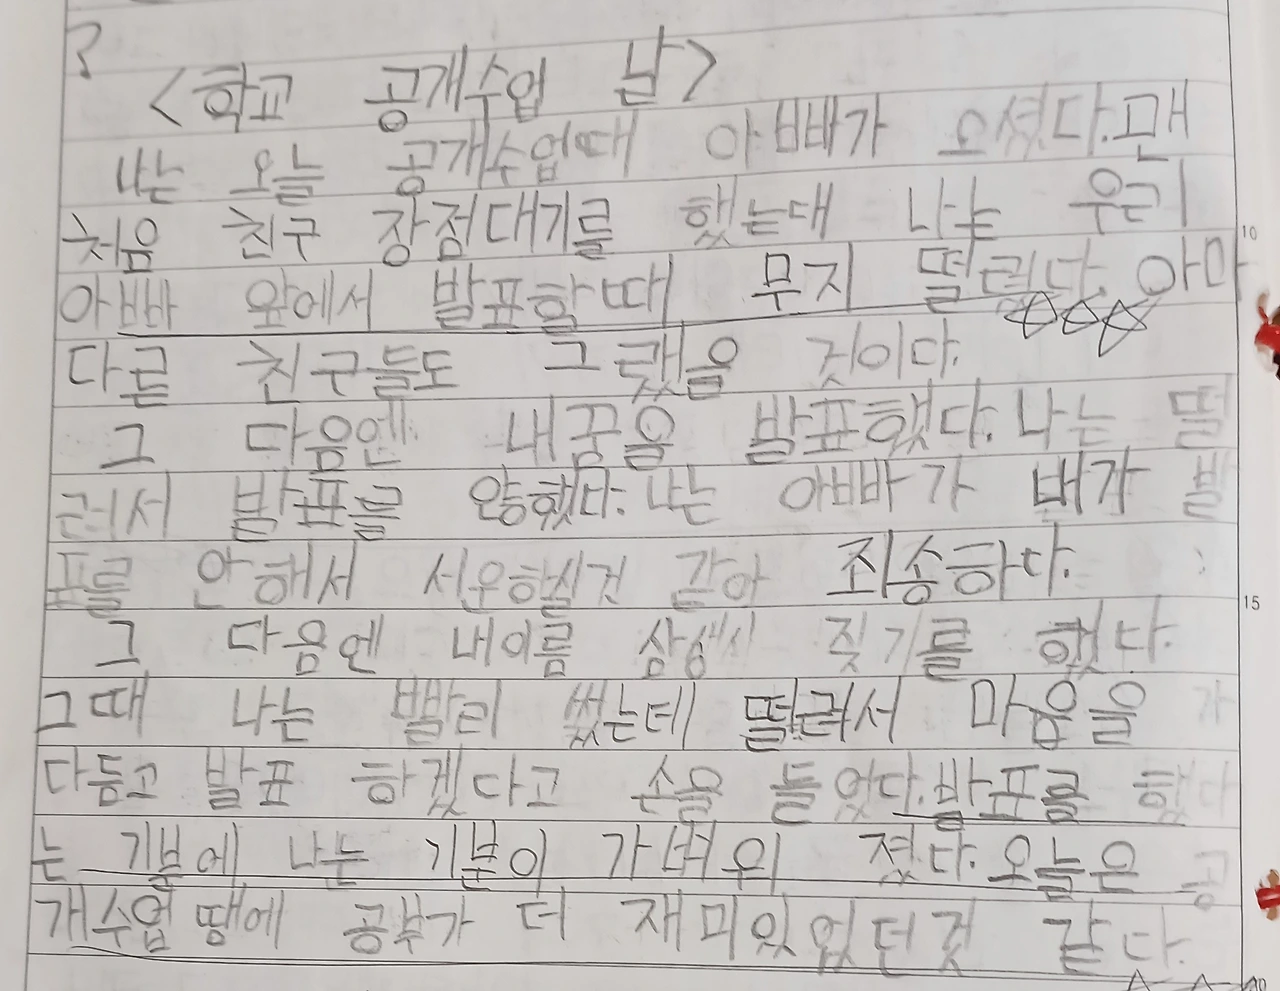 3
<학교 공개수업 날>
나는 오늘 공개수업때 아빠가 오셨다. 맨
처음 친구 장점대기를 했는대 나는 우리
10
아빠 앞에서 발표할때 무지 떨렸다. 아마
다른 친구들도 그랬을 것이다.
그 다음엔 내꿈을 발표했다. 나는 떨
려서 발표를 않했다. 나는 아빠가 내가 발
표를 안해서 서운하실건 같아 죄송하다.
15
그 다음엔 내이름 삼행시 짖기를 했다.
그때 나는 빨리 썼는데 떨려서 마음을 가
다듬고 발표 하겠다고 손을 들었다. 발표를 했다
는 기분에 나는 기분이 가벼워 졌다. 오늘은 공
개수업 땡에 공부가 더 재미있었던것 같다.